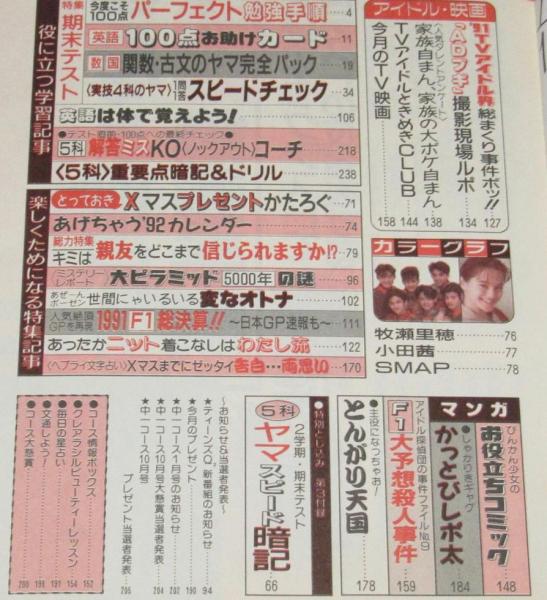 役に立つ学習記事
特集
期末テスト
今度こそ100点
パーフェクト勉強手順……4
英語
100点お助けカード……11
数国
関数・古文のヤマ完全パック……19
〈実技4科のヤマ〉
一問一答
スピードチェック……34
英語は体で覚えよう!……106
●テスト直前・100点への最終チェック●
5科
解答ミスKO(ノックアウト)コーチ……218
〈5科〉重要点暗記&ドリル……238
楽しくためになる特集記事
とっておき
Xマスプレゼントかたろぐ……71
あげちゃう'92カレンダー……74
総力特集
キミは親友をどこまで信じられますか!?……79
ミステリーレポート
大ピラミッド5000年の謎……96
あぜーんボーゼン
世間にゃいるいる変なオトナ……102
人気絶頂GPを再現
1991F1総決算!!〜日本GP速報も〜……111
あったかニット着こなしはわたし流……122
〈ヘブライ文字占い〉Xマスまでにゼッタイ告白…両思い……170
アイドル・映画
'91TVアイドル界総まくり事件ボッ!!……127
「ADブギ」撮影現場ルポ……134
〈人気タレントアンケート〉
家族自まん、家族の大ボケ自まん……138
TVアイドルときめきCLUB……144
今月のTV映画……158
カラーグラフ
牧瀬里穂……76
小田茜……77
SMAP……78
マンガ
びんかん少女の
お役立ちコミック……148
●しゃかりきギャグ
かっとびレポ太……184
アイドル探偵団の事件ファイルNo.9
F1大予想殺人事件……159
●主役になっちゃお!
とんがり天国……178
●特別とじ込み 第3付録
2学期・期末テスト
5科
ヤマスピード暗記……66
〜お知らせ&当選者発表〜
★ティーンズQ新番組のお知らせ……94
★今月のプレゼント……190
★中一コース1月号のお知らせ……202
★中一コース10月号大懸賞当選者発表……204
★中一コース10月号
プレゼント当選者発表……205
●コース情報ボックス……152
●クレアラシルビューティーレッスン……154
●毎日の星占い……191
●文通しよう!……198
●コース大懸賞……200